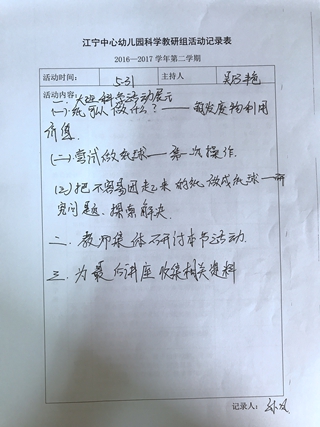 江宁中心幼儿园科学教研组活动记录表
2016—2017学年第二学期
活动时间：
5.31
主持人
活动内容：
一、大班科学活动展示
(一)纸可以做什么？——
利用
(二)尝试做纸球——第一次操作.
(三)把不容易团起来的纸做成纸球——研
究问题，探索解决.
二、教师集体研讨本节活动.
三、为最后讲座收集相关资料
记录人：